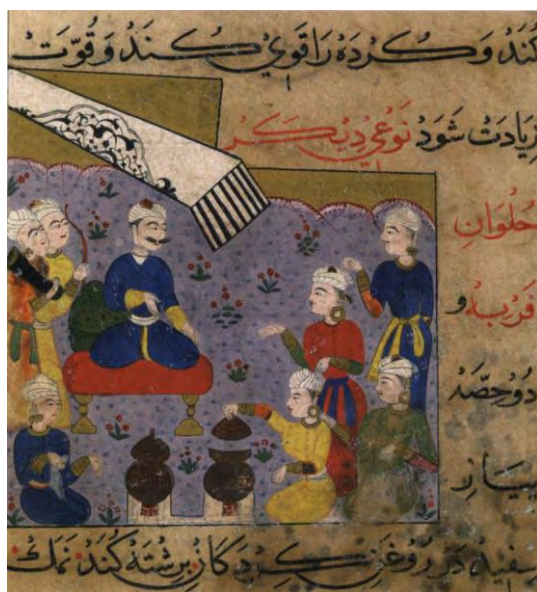 كُنَدْ وَ كُرْدَهْ رَا قَوِيْ كُنَدْ وَ قُوّتْ
زِيَادَتْ شَوَدْ نَوْعِي دِيكَرْ
حُلْوَانِ
فَرْبِهْ و
دُو حِصَّهْ
پِيَازِ
سفِيدْ دَرْ رُوغَنِ كِردَكَانْ بِرِشْتَهْ كُنَدْ نَمَكْ